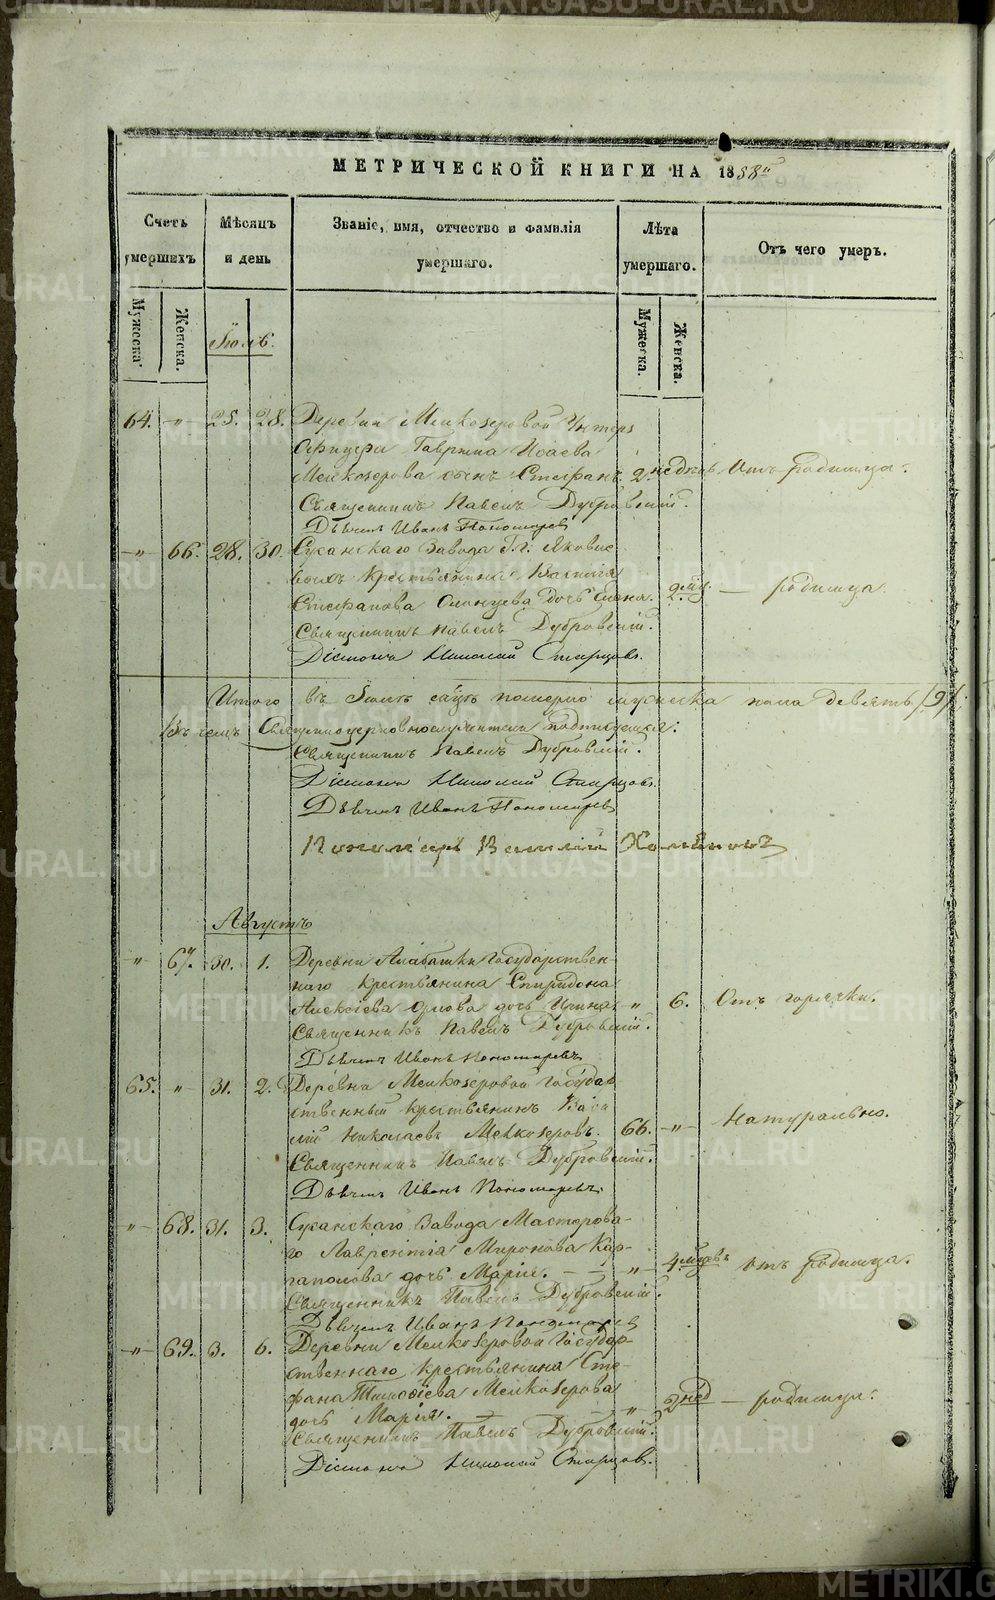 МЕТРИЧЕСКОЙ КНИГИ НА 1858й
Счетъ умершихъ
Мѣсяцъ и день
Званіе, имя, отчество и фамилія умершаго.
Лѣта умершаго.
Отъ чего умеръ.
Мужеска.
Женска.
Мужеска.
Женска.
Іюль.
64. " 25. 28. Деревни Мелкозеровой Унтеръ
Офицера Гаврила Исаева
Мелкозерова сынъ Стефанъ. 2 недѣль Отъ родимца.
Священникъ Павелъ Дубровскій.
Дьячекъ Иванъ Пономаревъ
" 66. 28. 30. Сусанскаго Завода Г.г. Яковле
выхъ крестьянина
Стефанова дочь 2 мѣц. — родимца
Священникъ Павелъ Дубровскій.
Діаконъ Николай Старцовъ.
Итого въ Іюлѣ померло мужеска пола девять /9/,
Въ чемъ Священноцерковнослужители подписуемся:
Священникъ Павелъ Дубровскій.
Діаконъ Николай Старцовъ.
Дьячекъ Иванъ Пономаревъ
Пономарь Василій
Августъ
" 67. 30. 1. Деревни Алабашки Государствен-
наго крестьянина Спиридона
Алексіева Орлова дочь Ирина. " 6. Отъ горячки.
Священникъ Павелъ Дубровскій.
Дьячекъ Иванъ Пономаревъ
65. " 31. 2. Деревни Мелкозеровой Государ
ственный крестьянинъ Васи
лій Николаевъ Мелкозеровъ. 66. " Натурально.
Священникъ Павелъ Дубровскій.
Дьячекъ Иванъ Пономаревъ
" 68. 31. 3. Сусанскаго Завода Мастерова-
го Лаврентія Миронова Кар-
паполова дочь Марія. — " 4 мѣцевъ отъ родимца.
Священникъ Павелъ Дубровскій.
Дьячекъ Иванъ Пономаревъ
" 69. 3. 6. Деревни Мелкозеровой Государ-
ственнаго крестьянина Сте-
фана Тимофіева Мелкозерова
дочь Марія. — " 2 нед — родимца.
Священникъ Павелъ Дубровскій.
Діаконъ Николай Старцовъ.
METRIKI.GASO-URAL.RU